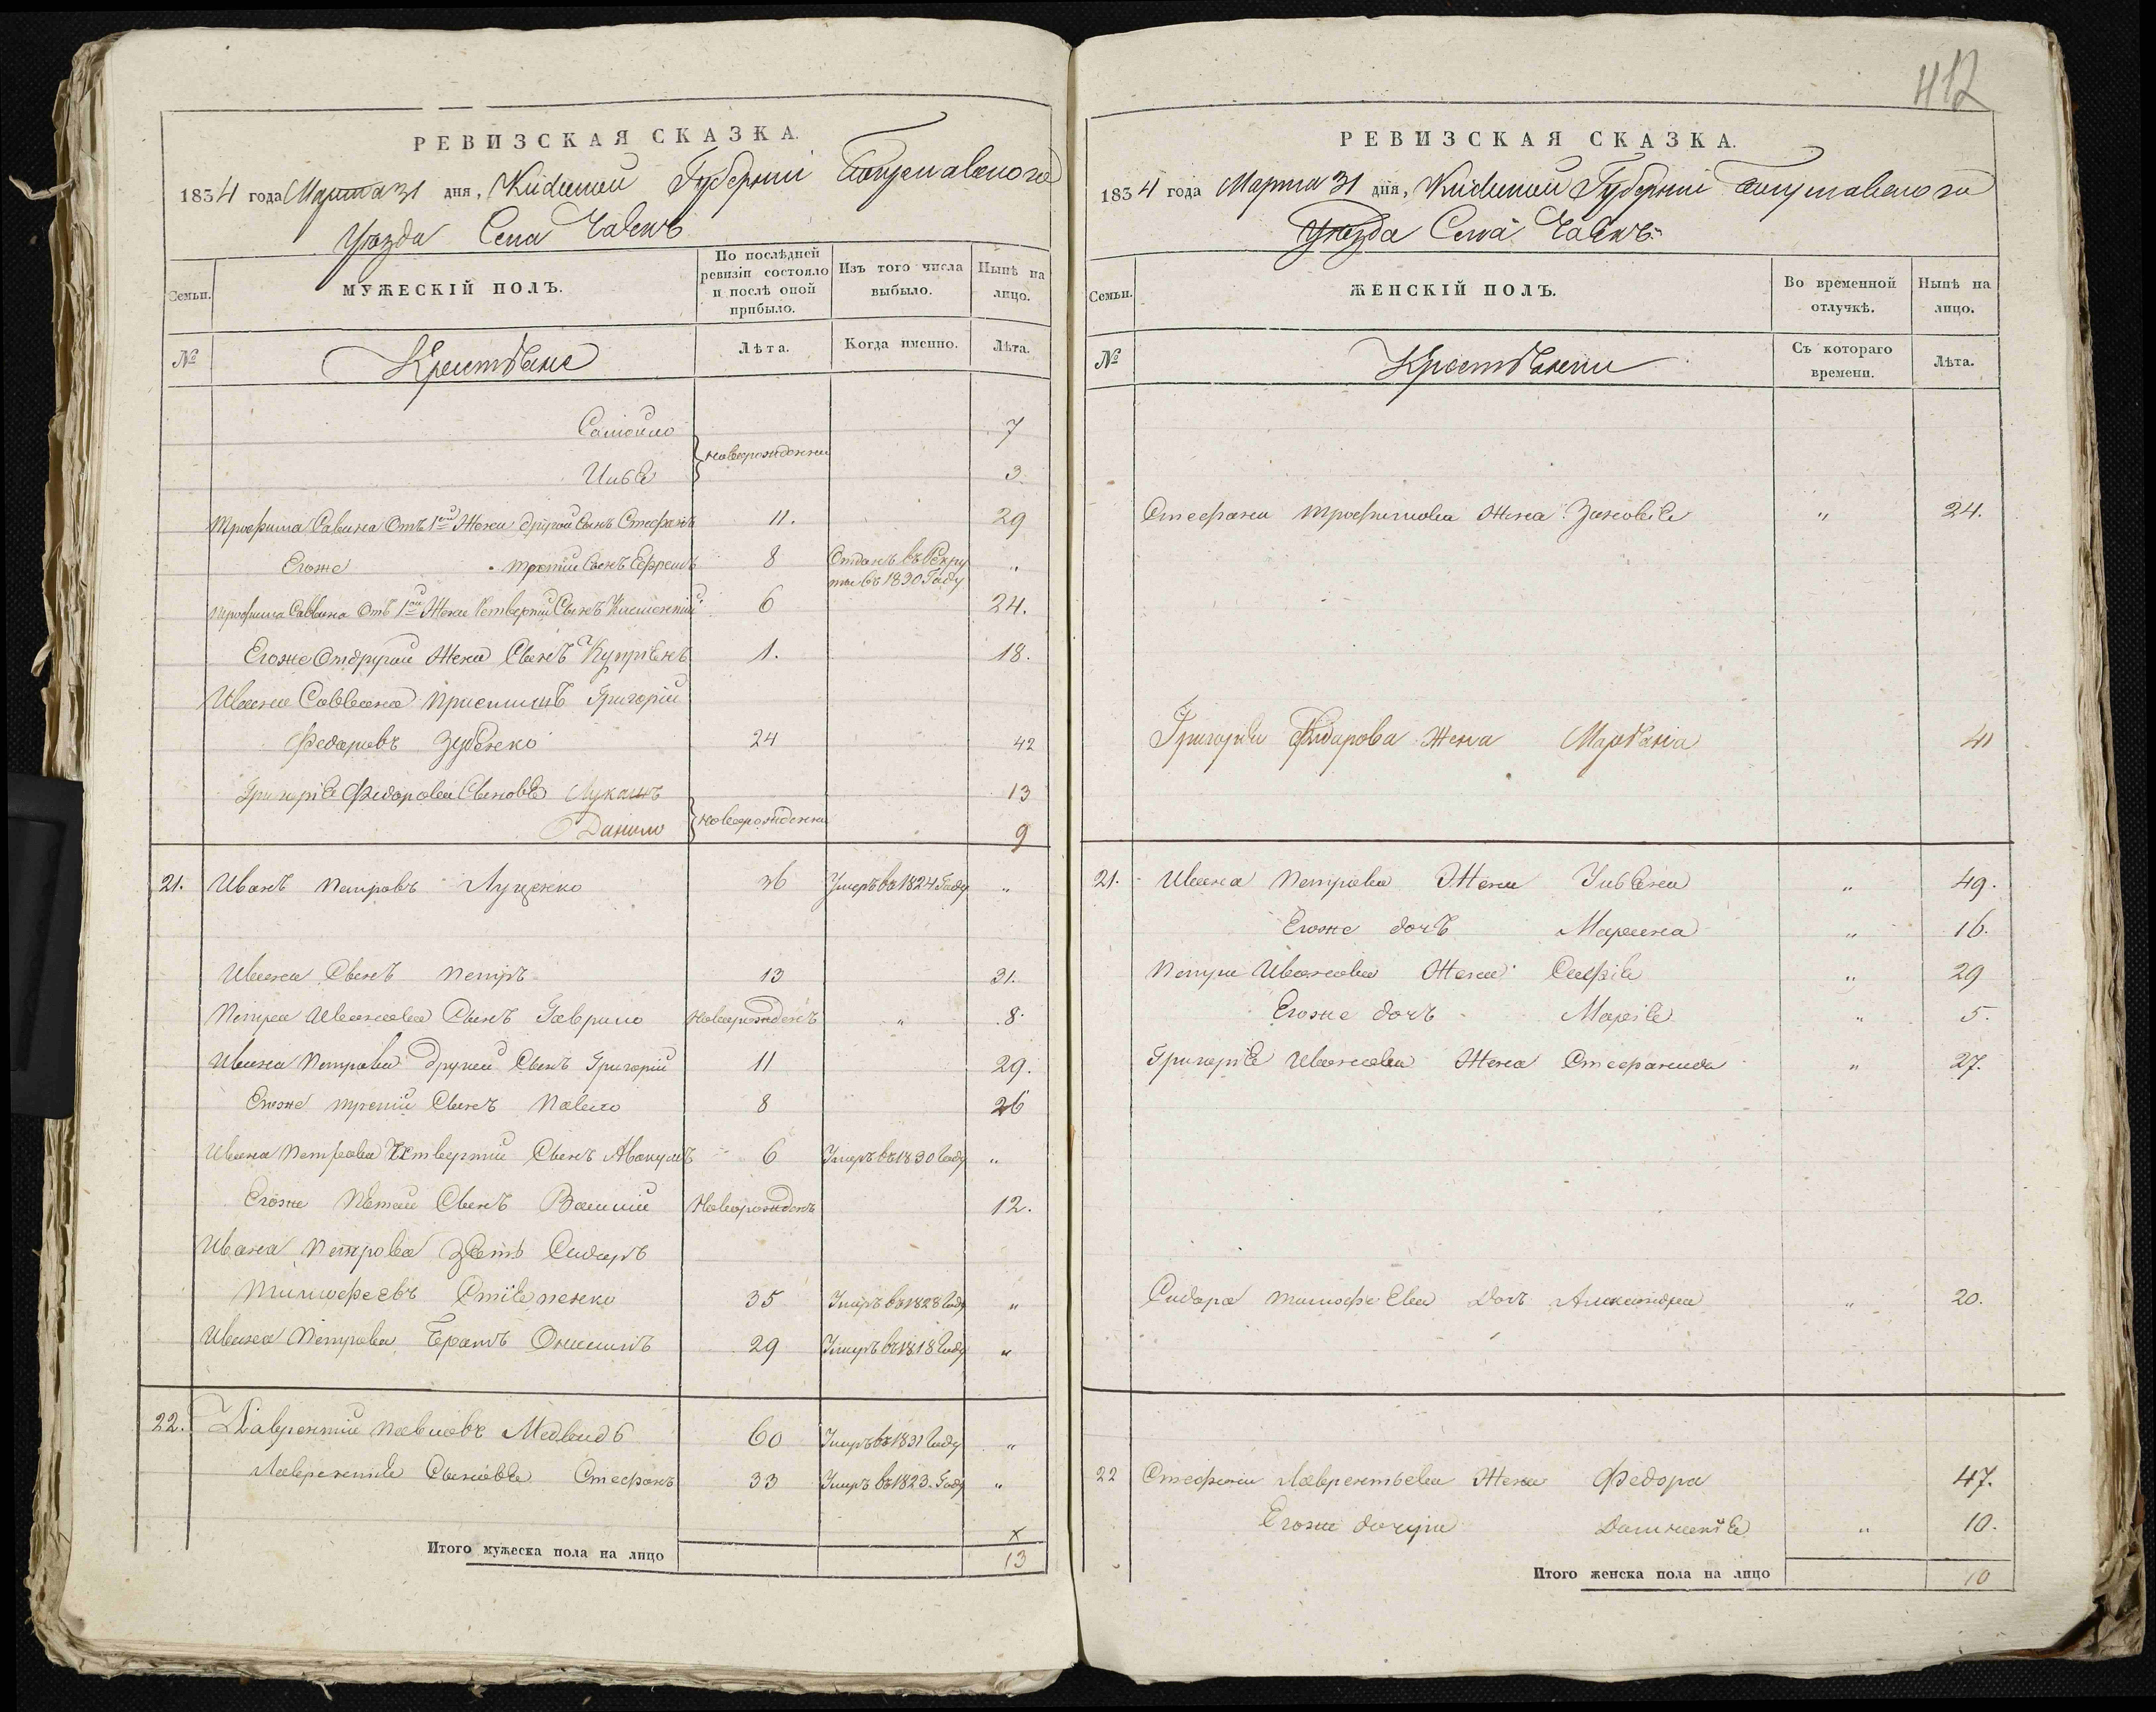 412
РЕВИЗСКАЯ СКАЗКА.
1834 года Марта 31 дня, Киевской Губерніи Богуславского
Уезда Села
Семьи.
МУЖЕСКІЙ ПОЛЪ.
По послѣдней ревизіи состояло и послѣ оной прибыло.
Изъ того числа выбыло.
Нынѣ на лицо.
№
Крестьяне
Лѣта.
Когда именно.
Лѣта.
Самойло 7
новорожденни
Илья 3
Трофима Савина Отъ 1ой Жени другой Сынъ Стефанъ 11. 29
Егоже третій Сынъ Ефремъ 8 Отданъ въ Рекру „
ты въ 1830 Году
Трофима Саввина Отъ 1ой Жени Четвертій Сынъ Климентій 6 24.
Егоже Отдругой Жени Сынъ Купріянъ 1. 18.
Ивана Саввина Приемишъ Григорій
Федоровъ Зубенко 24 42
Григорія Федорова Сыновья Лукашъ 13
новорожденни
Данило 9
21. Иванъ Петровъ Луценко 36 Умеръ въ 1824 Году „
Ивана Сынъ Петръ 13 31.
Петра Иванова Сынъ Гаврило Новорожденъ „ 8.
Ивана Петрова другой Сынъ Григорій 11 29.
Егоже третій Сынъ Павло 8 26
Ивана Петрова Четвертій Сынъ Авакумъ 6 Умеръ въ 1830 Году „
Егоже Пятой Сынъ Василій Новорожденъ 12.
Ивана Петрова зять Сидоръ
Тимофеевъ 35 Умеръ въ 1828 Году „
Ивана Петрова Братъ Онисимъ 29 Умеръ въ 1818 Году „
22. Лаврентій Павловъ Медведь 60 Умеръ въ 1831 Году „
Лаврентія Сыновья Стефанъ 33 Умеръ въ 1823. Году „
х
Итого мужеска пола на лицо 13
РЕВИЗСКАЯ СКАЗКА.
1834 года Марта 31 дня, Киевской Губерніи Богуславского
Уезда Села
Семьи.
ЖЕНСКІЙ ПОЛЪ.
Во временной отлучкѣ.
Нынѣ на лицо.
№
Крестьянки
Съ котораго времени.
Лѣта.
Стефана Трофимова Жена Зиновія „ 24.
Григорія Федорова Жена Марьяна 41
21. Ивана Петрова Жена Ульяна „ 49.
Егоже дочь Марина „ 16.
Петра Иванова Жена Софія „ 29
Егоже дочь Марія „ 5.
Григорія Иванова Жена Стефанида „ 27.
Сидора Тимофеева Дочь Александра „ 20.
22 Стефана Лаврентьева Жена Федора 47.
Егоже дочери Домникія „ 10.
Итого женска пола на лицо 10